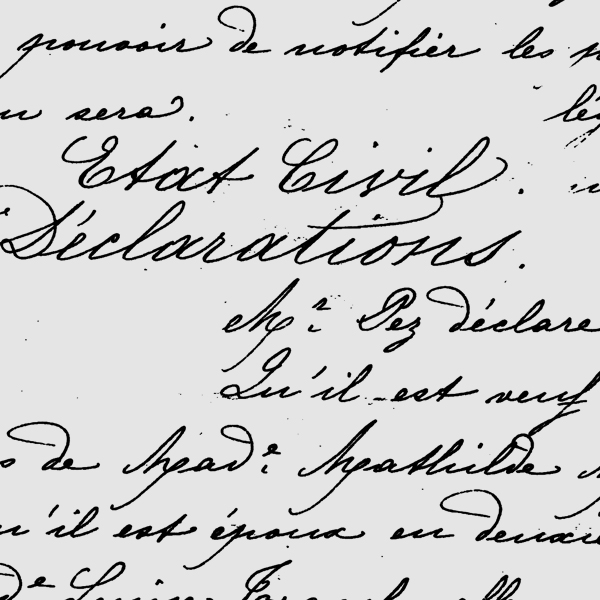 pouvoir de notifier les
sera.
Etat Civil.
Déclarations.
Mr. Pez déclare
Qu'il est veuf
de Made. Mathilde
qu'il est époux en